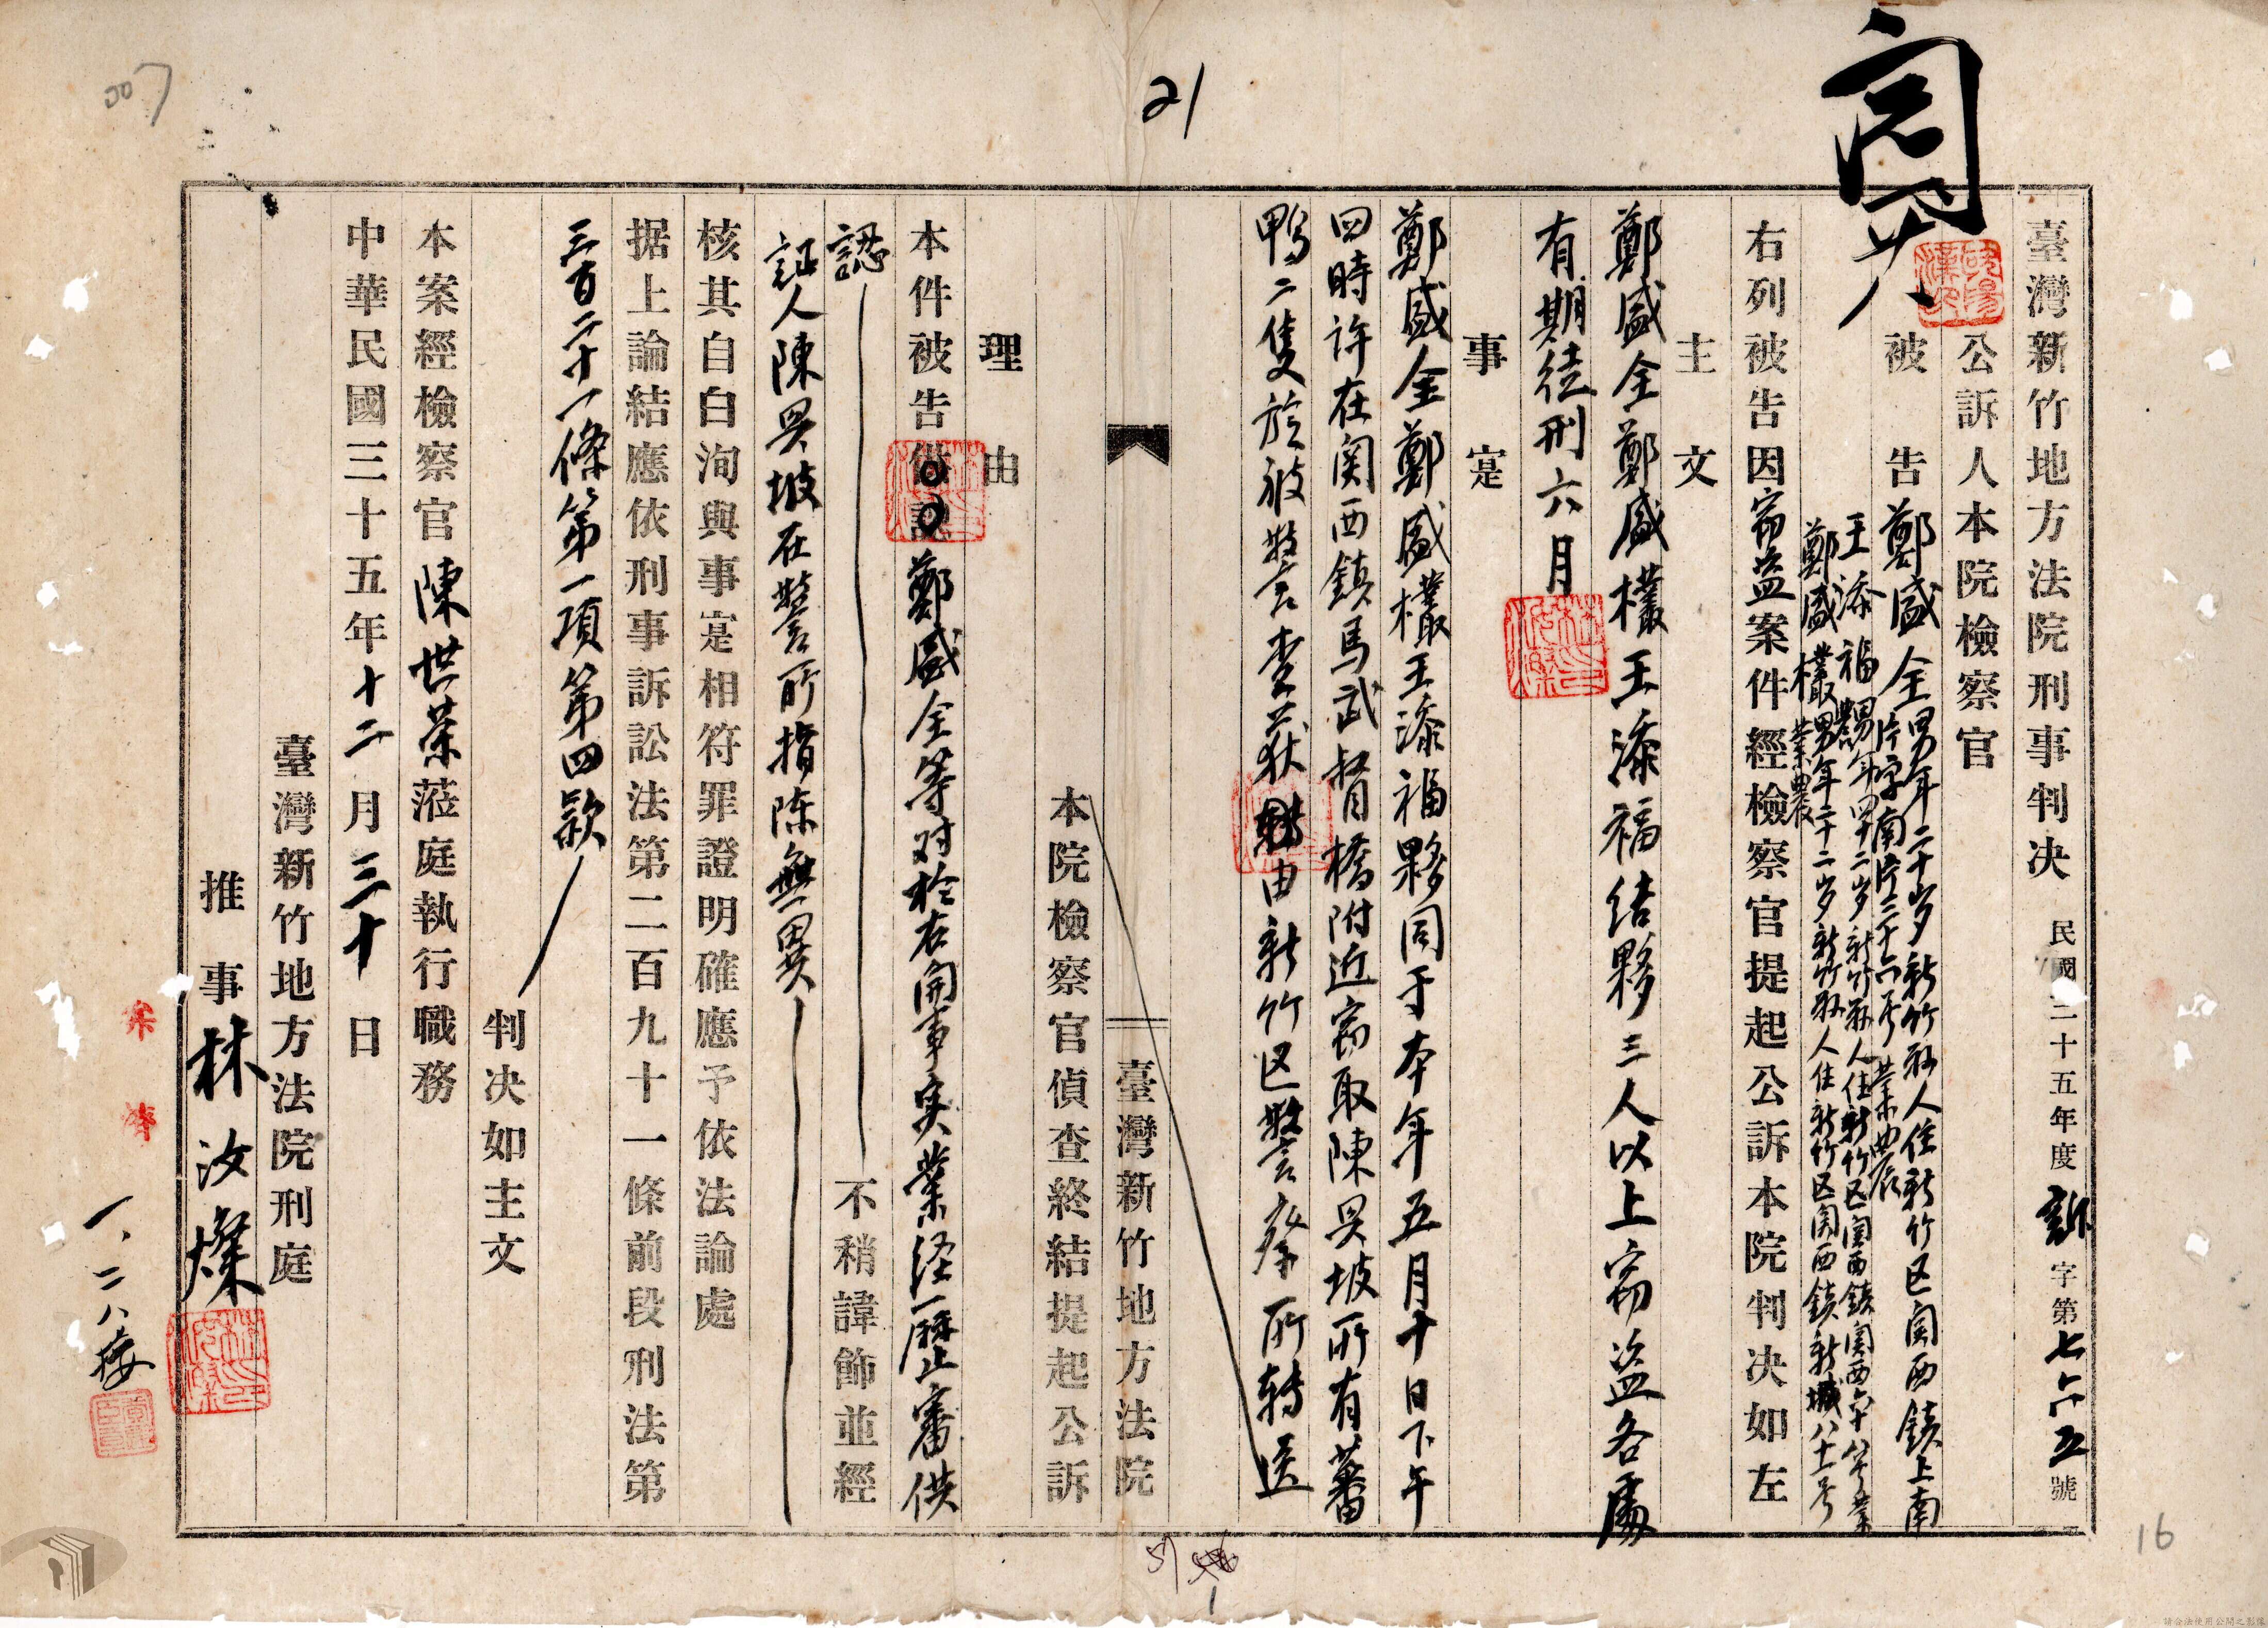 007
21
閱
臺灣新竹地方法院刑事判決 民國三十五年度訴字第七六五號
公訴人本院檢察官
被告鄭盛全男年二十岁新竹縣人住新竹区関西鎮上南
片字南片三十六号業農
王添福男年四十二岁新竹縣人住新竹区関西鎮関西六十八号業
鄭盛欉男年二十二岁新竹縣人住新竹区関西鎮新城八十一号
業農
右列被告因窃盗案件經檢察官提起公訴本院判决如左
主文
鄭盛全鄭盛欉王添福結夥三人以上窃盗各處
有期徒刑六月
事寔
鄭盛全鄭盛欉王添福夥同于本年五月十日下午
四時許在関西鎮馬武督橋附近窃取陳吳坡所有蕃
鴨二隻於被警查获由新竹区警察所轉送
臺灣新竹地方法院
本院檢察官偵查終結提起公訴
理由
本件被告鄭盛全等对於右開事实業经歷審供
認不稍諱飾並經
証人陳吳坡在警所指陈無異
核其自白洵與事寔相符罪證明確應予依法論處
据上論結應依刑事訴訟法第二百九十一條前段刑法第
三百二十一條第一項第四款
判决如主文
本案經檢察官陳世荣蒞庭執行職務
中華民國三十五年十二月三十日
臺灣新竹地方法院刑庭
推事林汝燦
一、二八接
57
1
16
請合法使用公開之影像